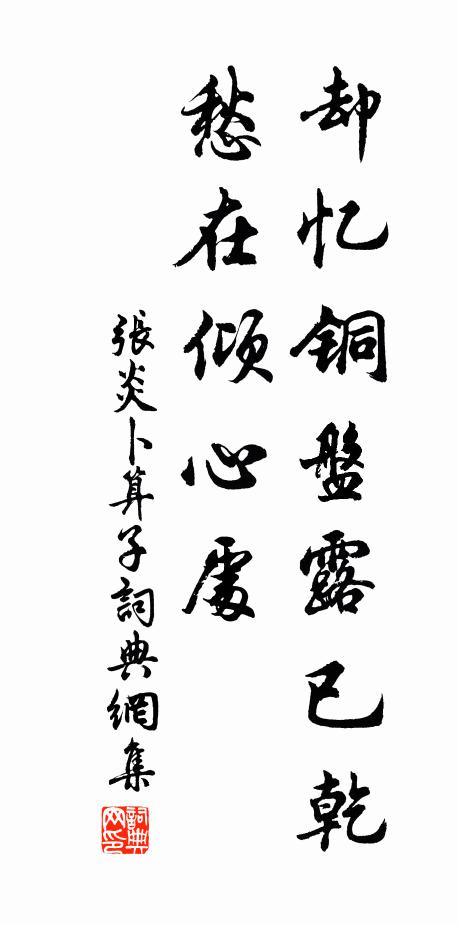 却忆铜盤露已乾
愁在倾心處
張炎卜算子詞典網集
詞典网印